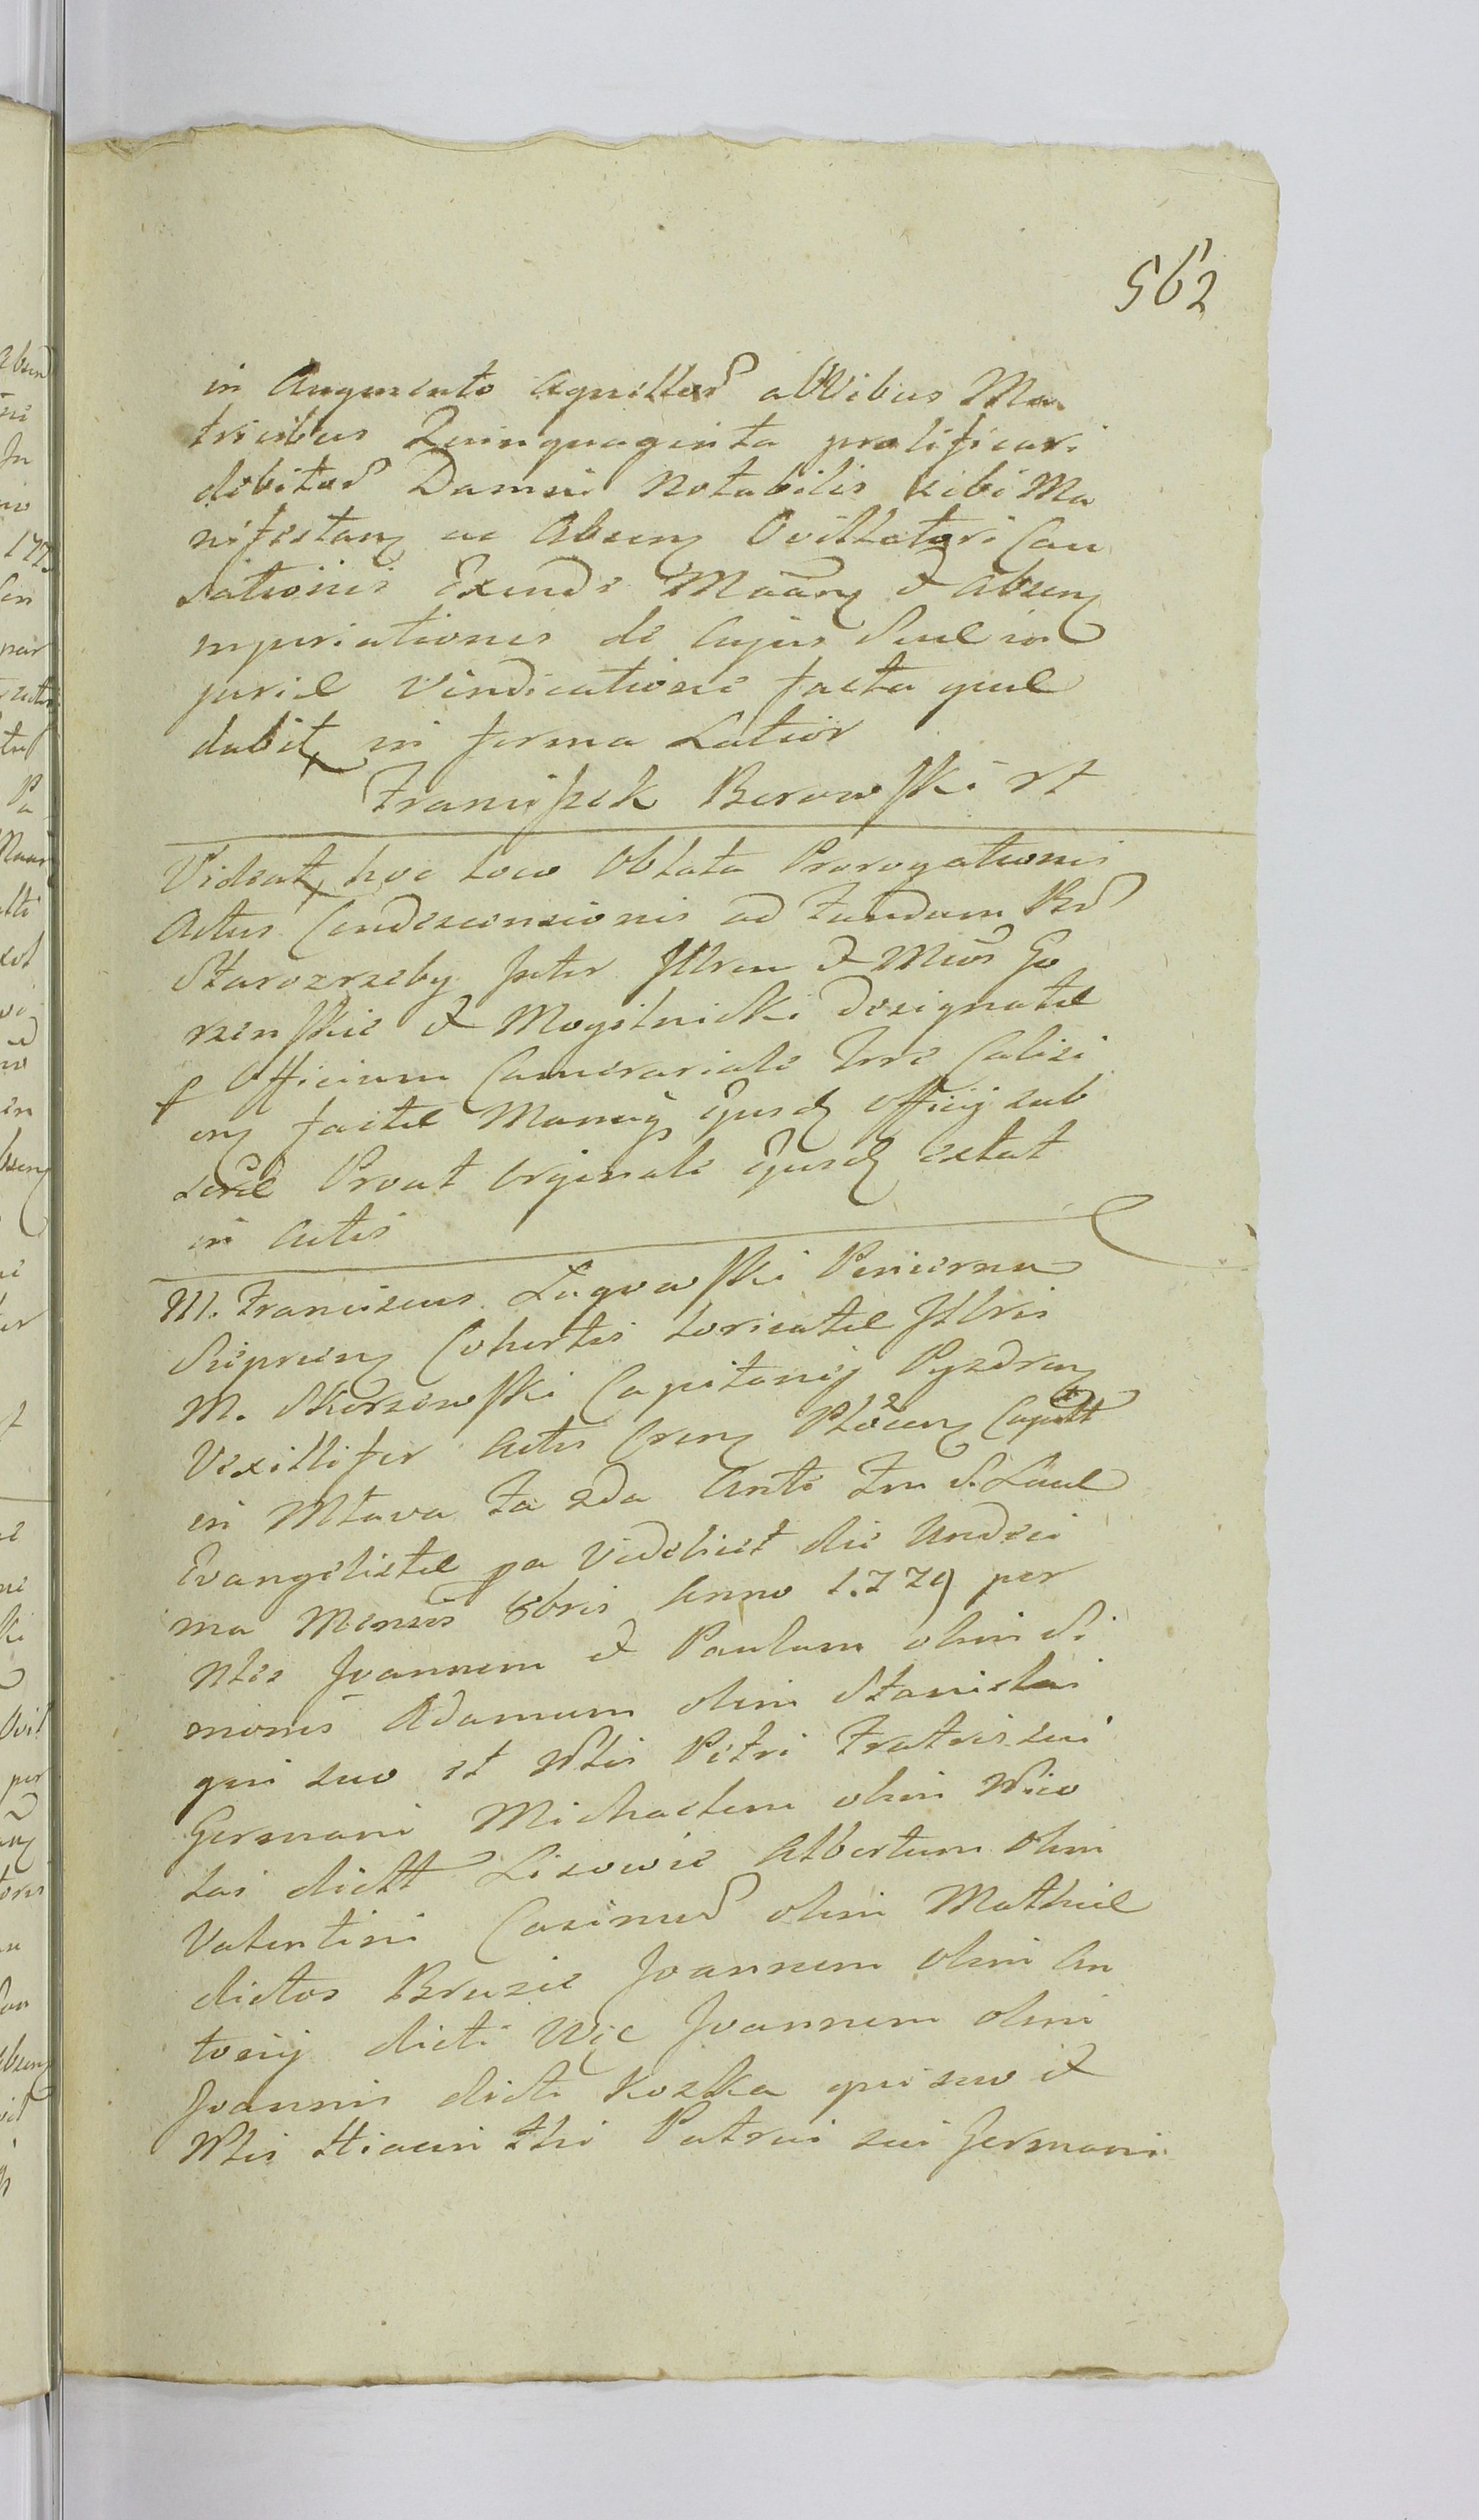 562
in Augmento Agnellor abVibus Ma
tricibus Quinquaginta prolificari
debitor Damni Notabilis sibi Ma
nifestanq ac Absenq Ovillatori Cau
sationis Exinde Maanq & absenq
injuriationis de cujus
juriæ Vindicatione facta quæ
dabitr in forma Latior
Franciszek Borowski rt
Videatr hoc loco Oblata Prorogationis
Actus Condescensionis ad Fundum Bor
Starozrzeby inter Illrem & Mcos Go
rzenskie & Mogilnicki designatæ
p Officium Camerariale Trre
enq factæ Manuq Ejusdq Officij sub
scræ Prout Originale Ejusdq extat
in Actis
M. Franciscus Lagowski Pincerna
Sieprcenq Cohortis Loricatæ Illris
M. Skorzewski Capitanij Pyzdrenq
Vexillifer Actis Crenq Plocenq Capitt
in Mlava fa 2da Ante Fm S. Lucæ
Evangelistæ pa Videlicet die Undeci
ma Mensis 8bris Anno 1779 per
Nles Joannem & Paulum olim Si
monis Adamum olim Stanislai
qui suo et Nlis Petri Fratris sui
Germani Michaelem olim Nico
lai dictt Lisowie Albertum olim
Valentini Casimir olim Mathiæ
dictos Bruzie Joannem olim An
tonij dicti Wic Joannem olim
Joannis dicti Kozka qui suo &
Nlis Hiacinthi Patrui sui Germani